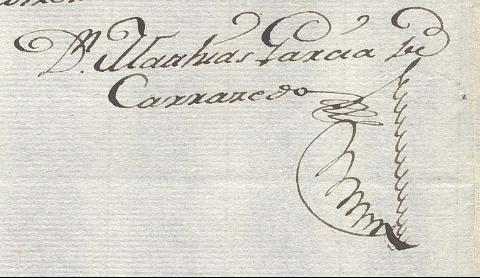 Dn. Mathias Garcia de
Carrazedo